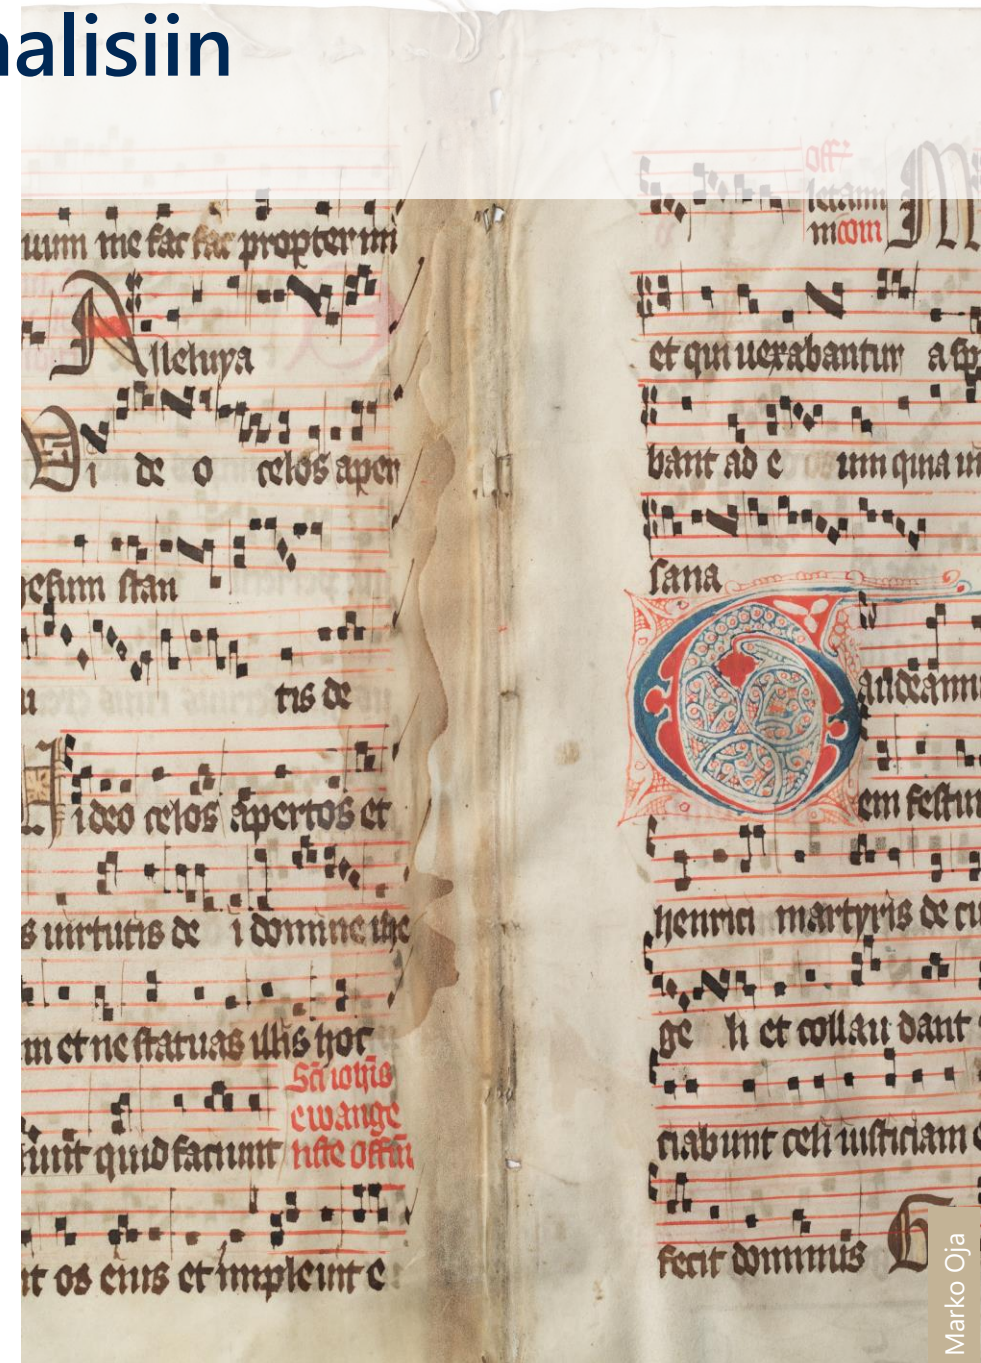 alisiin
uum me fac fac propter mi
Alleluya
Di de o celos aper
iesum stan
tis de
ideo celos apertos et
s uirtutis de i domine ihe
m et ne statuas illis hoc
Sci iohis
ewange
liste offm
iunt quid faciunt
it os eius et impleuit e
off
letamr
m com
M
et qui uexabantur a sp
bant ad e um quia ui
sana
Gaudeamu
em festum
henrici martyris de cu
ge li et collau dant
ciabunt celi iusticiam e
fecit dominus
Marko Oja